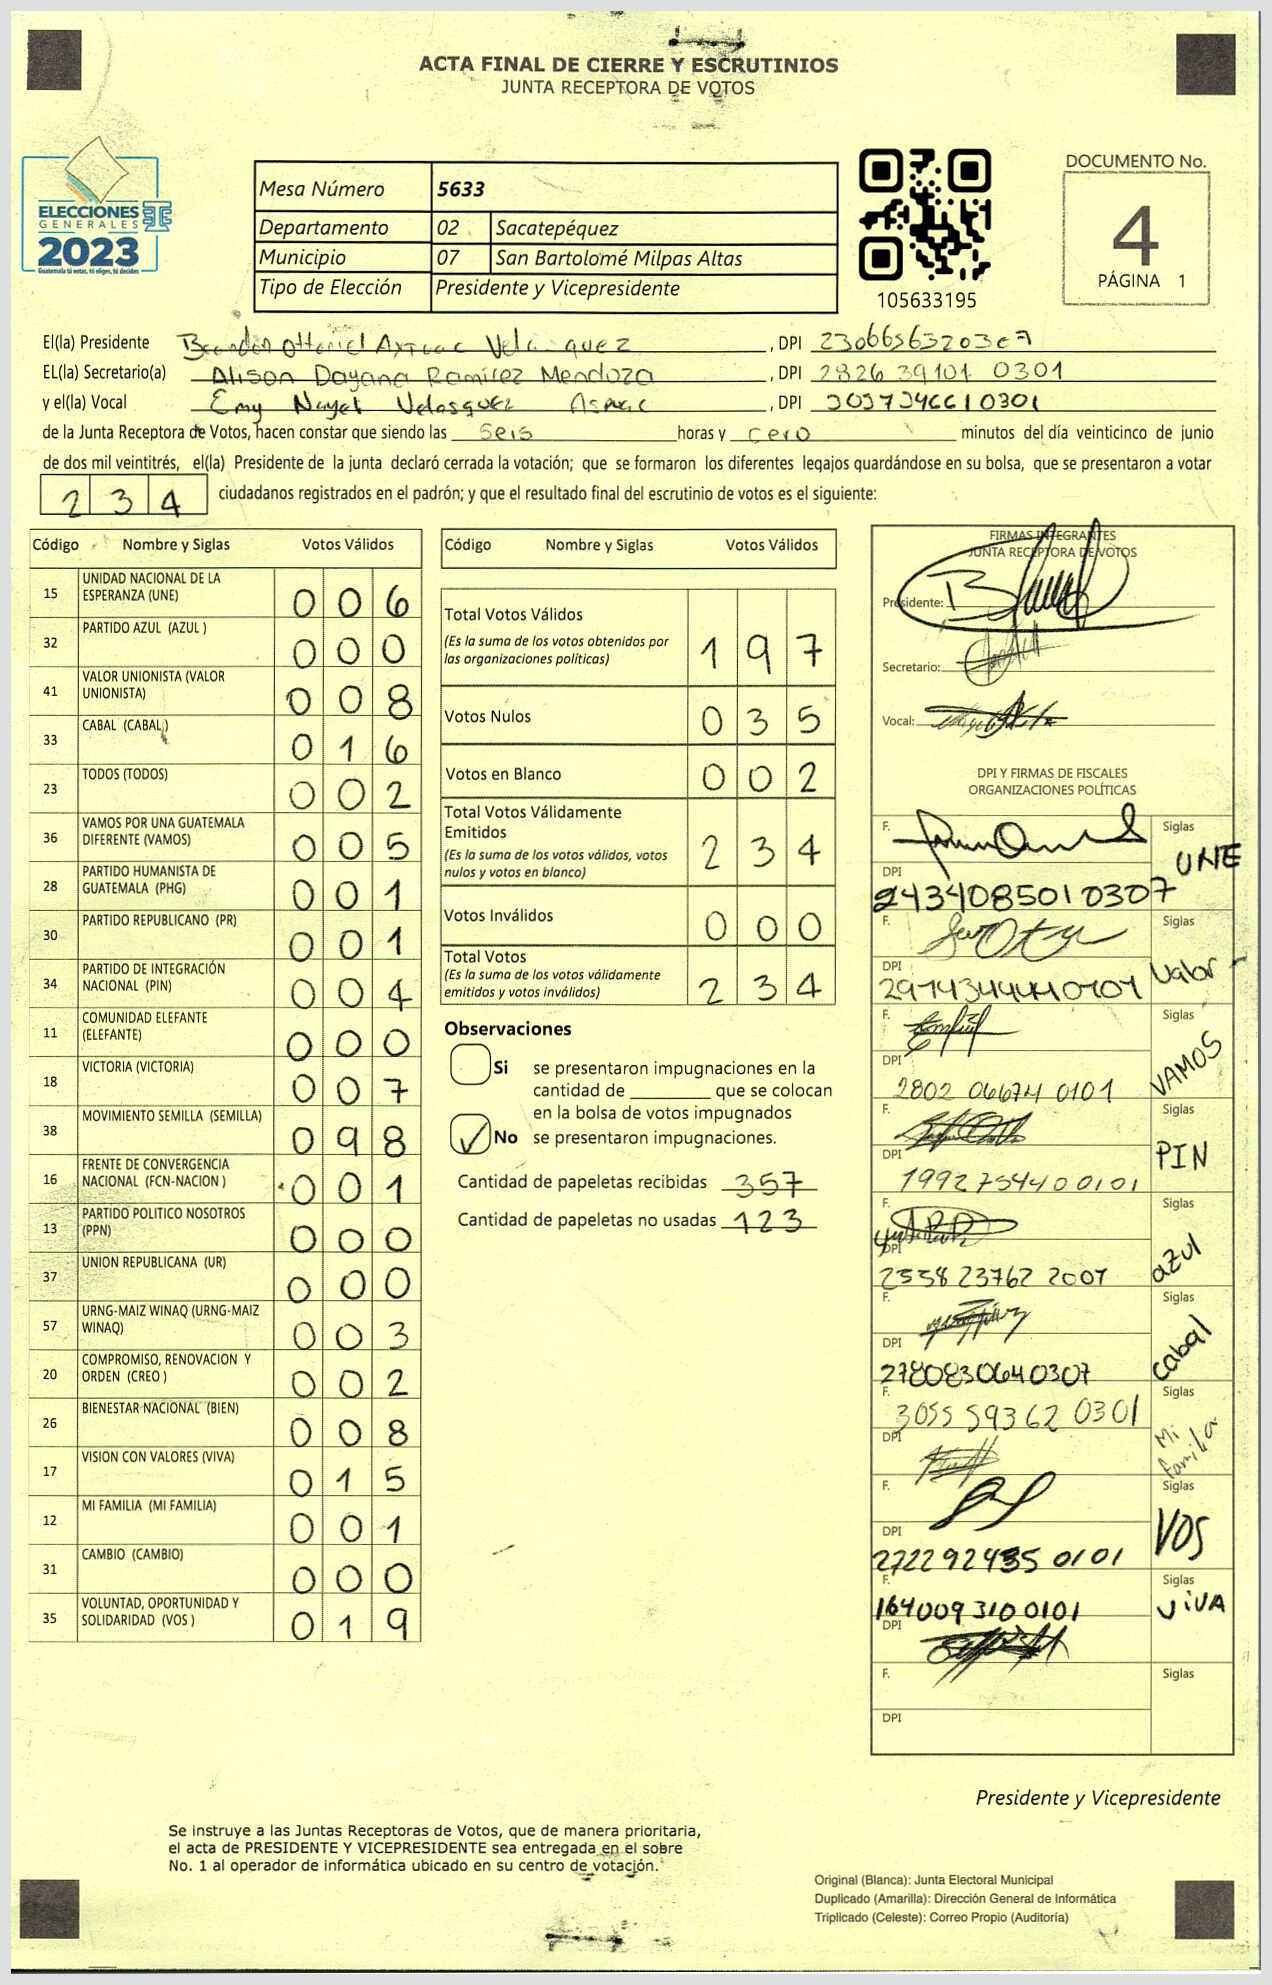 ACTA FINAL DE CIERRE Y ESCRUTINIOS
JUNTA RECEPTORA DE VOTOS
ELECCIONES
GENERALES
2023
Guatemala tú votas, tú eliges, tú decides
Mesa Número 5633
Departamento 02 Sacatepéquez
Municipio 07 San Bartolomé Milpas Altas
Tipo de Elección Presidente y Vicepresidente
105633195
DOCUMENTO No.
4
PÁGINA 1
El(la) Presidente Velasquez , DPI
EL(la) Secretario(a) Alison Dayana Ramirez Mendoza , DPI 2826 39101 0301
y el(la) Vocal Emy Velasquez , DPI 3037346610301
de la Junta Receptora de Votos, hacen constar que siendo las seis horas y cero minutos del día veinticinco de junio
de dos mil veintitrés, el(la) Presidente de la junta declaró cerrada la votación; que se formaron los diferentes legajos quardándose en su bolsa, que se presentaron a votar
2 3 4 ciudadanos registrados en el padrón; y que el resultado final del escrutinio de votos es el siguiente:
Código Nombre y Siglas Votos Válidos
15 UNIDAD NACIONAL DE LA ESPERANZA (UNE) 0 0 6
32 PARTIDO AZUL (AZUL ) 0 0 0
41 VALOR UNIONISTA (VALOR UNIONISTA) 0 0 8
33 CABAL (CABAL ) 0 1 6
23 TODOS (TODOS) 0 0 2
36 VAMOS POR UNA GUATEMALA DIFERENTE (VAMOS) 0 0 5
28 PARTIDO HUMANISTA DE GUATEMALA (PHG) 0 0 1
30 PARTIDO REPUBLICANO (PR) 0 0 1
34 PARTIDO DE INTEGRACIÓN NACIONAL (PIN) 0 0 4
11 COMUNIDAD ELEFANTE (ELEFANTE) 0 0 0
18 VICTORIA (VICTORIA) 0 0 7
38 MOVIMIENTO SEMILLA (SEMILLA) 0 9 8
16 FRENTE DE CONVERGENCIA NACIONAL (FCN-NACION ) 0 0 1
13 PARTIDO POLITICO NOSOTROS (PPN) 0 0 0
37 UNION REPUBLICANA (UR) 0 0 0
57 URNG-MAIZ WINAQ (URNG-MAIZ WINAQ) 0 0 3
20 COMPROMISO, RENOVACION Y ORDEN (CREO ) 0 0 2
26 BIENESTAR NACIONAL (BIEN) 0 0 8
17 VISION CON VALORES (VIVA) 0 1 5
12 MI FAMILIA (MI FAMILIA) 0 0 1
31 CAMBIO (CAMBIO) 0 0 0
35 VOLUNTAD, OPORTUNIDAD Y SOLIDARIDAD (VOS ) 0 1 9
Código Nombre y Siglas Votos Válidos
Total Votos Válidos 1 9 7
(Es la suma de los votos obtenidos por
las organizaciones políticas)
Votos Nulos 0 3 5
Votos en Blanco 0 0 2
Total Votos Válidamente
Emitidos 2 3 4
(Es la suma de los votos válidos, votos
nulos y votos en blanco)
Votos Inválidos 0 0 0
Total Votos 2 3 4
(Es la suma de los votos válidamente
emitidos y votos inválidos)
Observaciones
Si se presentaron impugnaciones en la
cantidad de ________ que se colocan
en la bolsa de votos impugnados
No se presentaron impugnaciones.
Cantidad de papeletas recibidas 357
Cantidad de papeletas no usadas 123
FIRMAS INTEGRANTES
JUNTA RECEPTORA DE VOTOS
Presidente:
Secretario:
Vocal:
DPI Y FIRMAS DE FISCALES
ORGANIZACIONES POLÍTICAS
F. Siglas
UNE
DPI
2434085010307
F. Siglas
Valor
DPI
F. Siglas
VAMOS
DPI
2802 06674 0101
F. Siglas
PIN
DPI
1992754400101
F. Siglas
azul
DPI
2558 23762 2007
F. Siglas
cabal
DPI
2780830640307
F. Siglas
3055 59362 0301
Mi familia
DPI
F. Siglas
VOS
DPI
272292435 0101
F. Siglas
164009310 0101
VIVA
DPI
F. Siglas
DPI
Presidente y Vicepresidente
Se instruye a las Juntas Receptoras de Votos, que de manera prioritaria,
el acta de PRESIDENTE Y VICEPRESIDENTE sea entregada en el sobre
No. 1 al operador de informática ubicado en su centro de votación.
Original (Blanca): Junta Electoral Municipal
Duplicado (Amarilla): Dirección General de Informática
Triplicado (Celeste): Correo Propio (Auditoría)